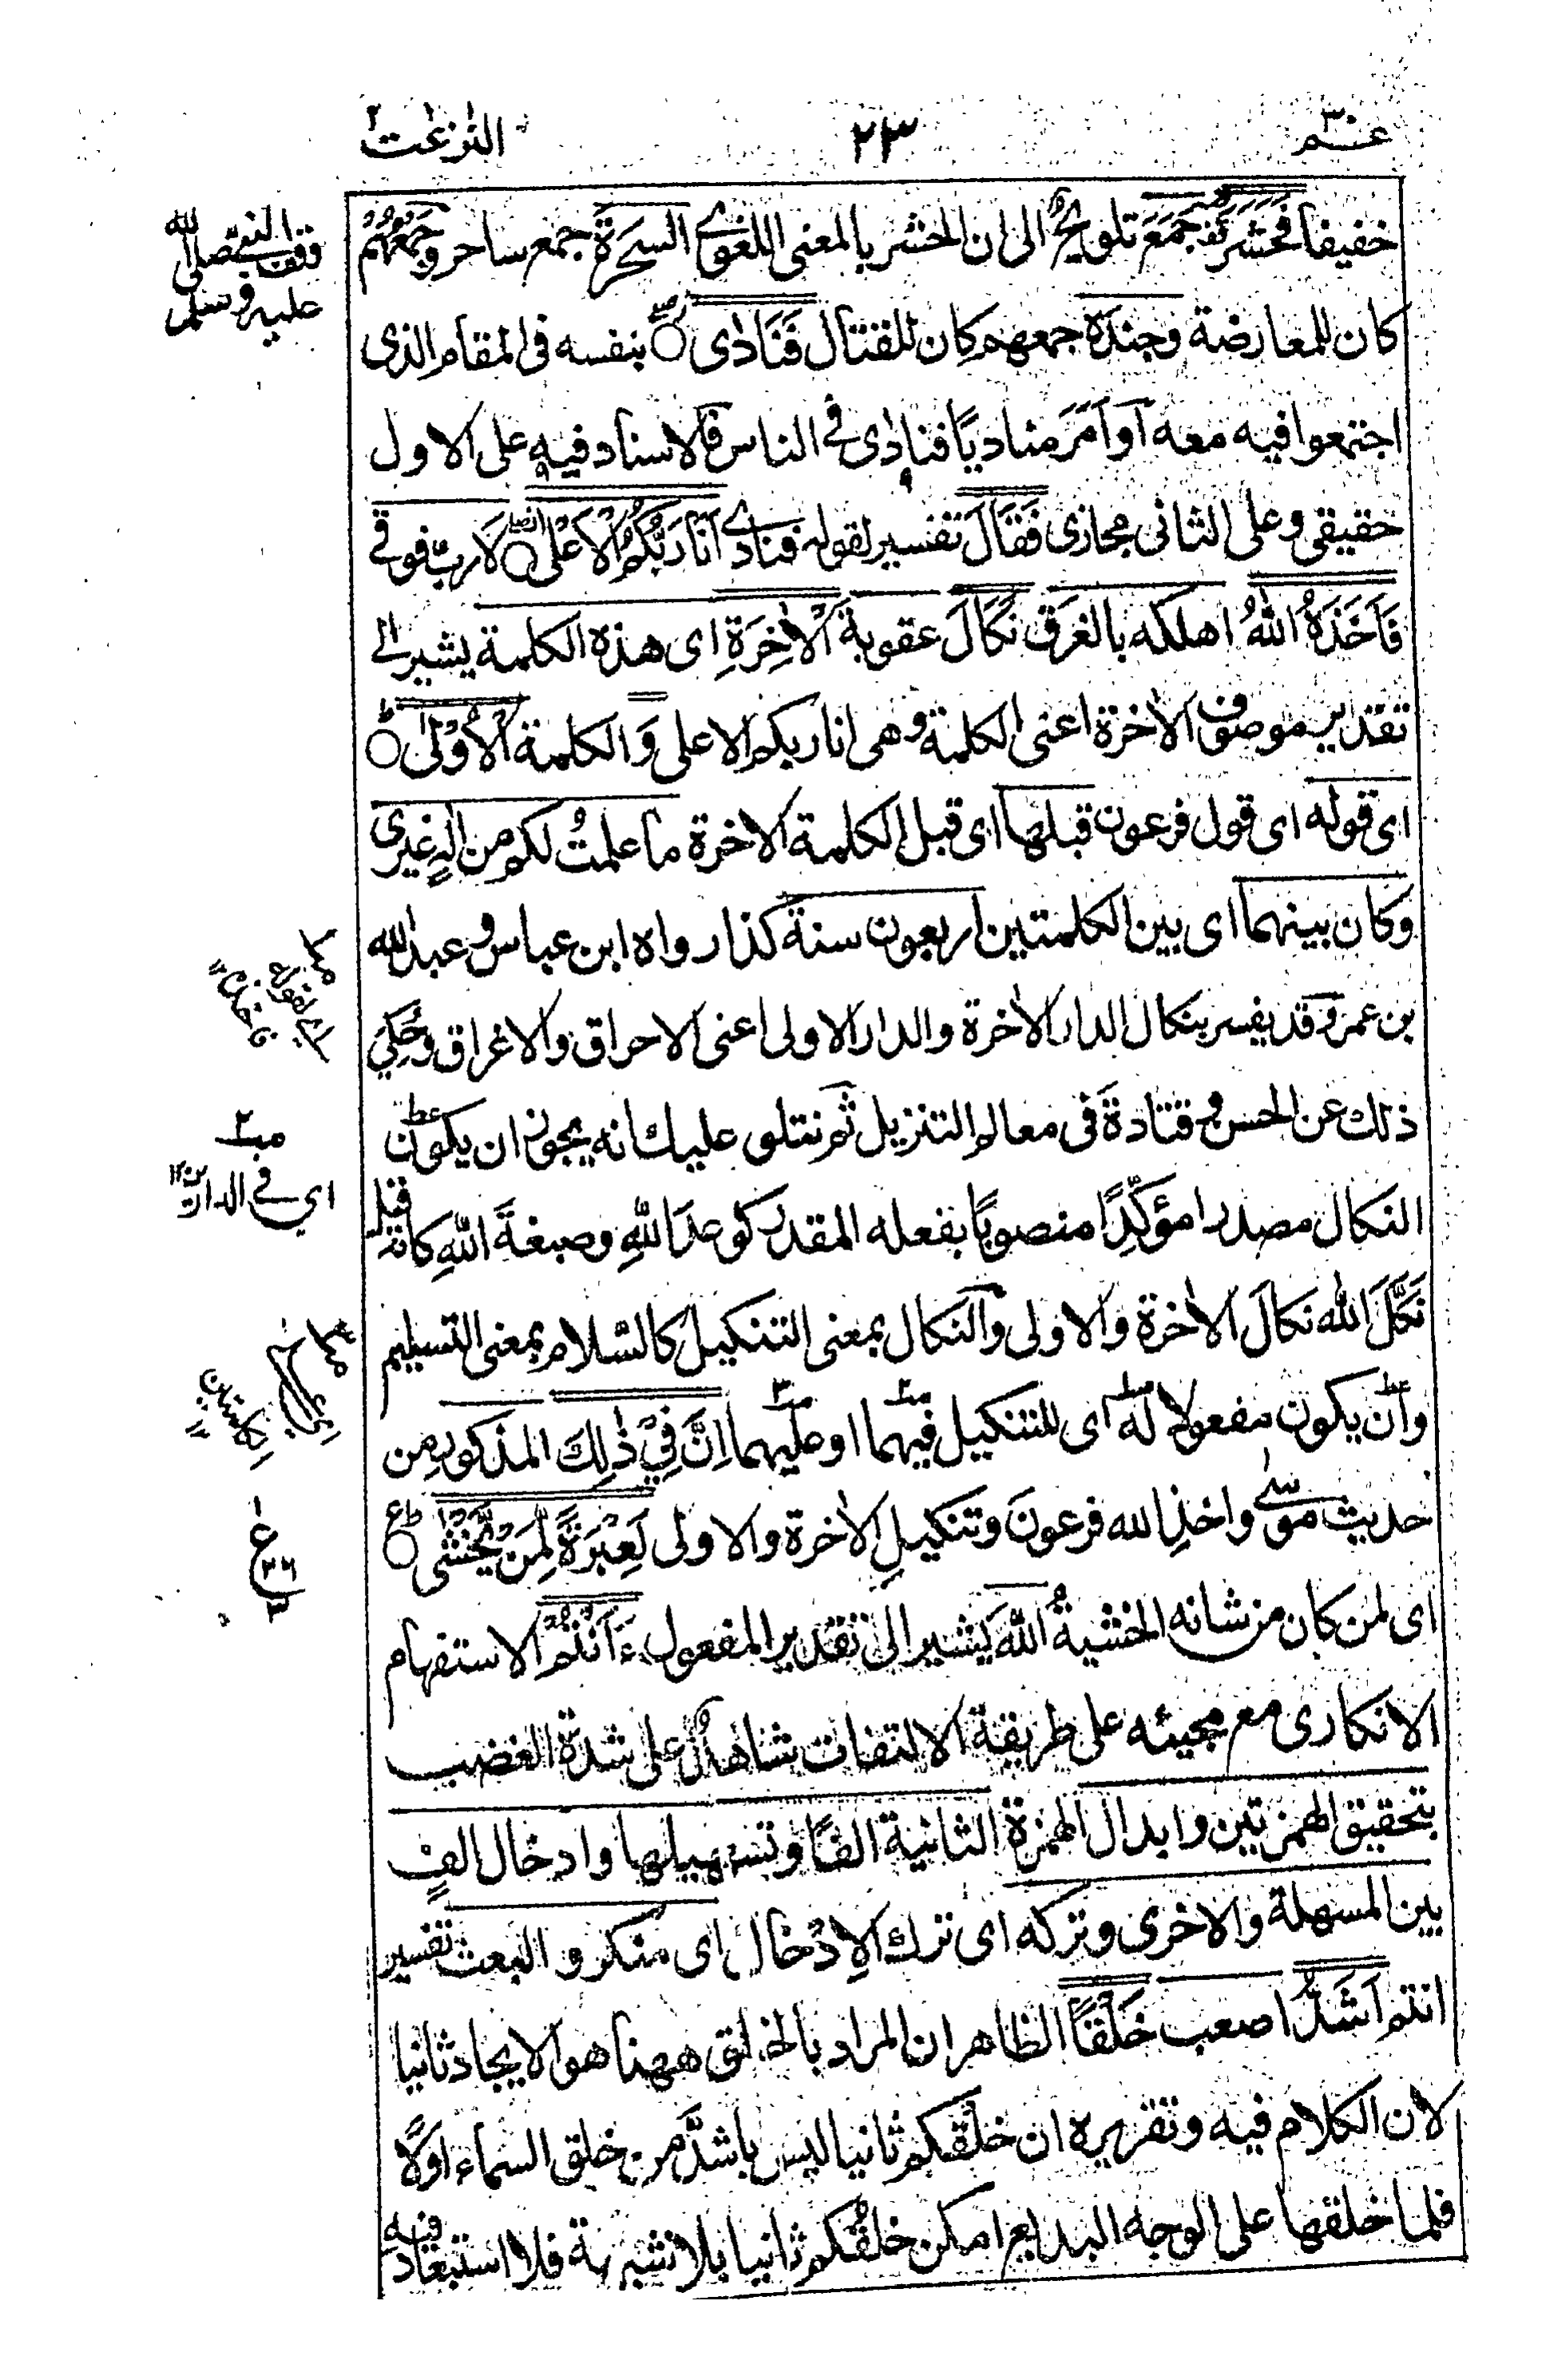 عـــم ٣٠
٢٣
النٰزعٰت
خفيفا فَحَشَرَ جَمَعَ تلويحٌ الى ان الحشر بالمعنى اللغوى السَحَرَةَ جمع ساحر وجَمْعُهُمْ
كان للمعارضة وجندَه جمعهم كان للقتال فَنَادٰى بنفسه فى المقام الذى
اجتمعوا فيه معه اَو اَمَرَ مناديًا فنادٰى فى الناس فالاسناد فيه على الاول
حقيقى وعلى الثانى مجازى فَقَالَ تفسير لقوله فنادى اَنَا رَبُّكُمُ الْاَعْلٰى لا ربّ فوقى
فَاَخَذَهُ اللّٰهُ اهلكه بالغرق نَكَالَ عقوبة الْاٰخِرَةِ اى هذه الكلمة يشير الى
تقدير موصوف الاٰخرة اعنى الكلمة وهى انا ربكم الاعلى وَ الكلمة الْاُوْلٰى
اى قوله اى قول فرعون قبلها اى قبل الكلمة الاخرة ما علمتُ لكم من الٰهٍ غيرى
وكان بينهما اى بين الكلمتين اربعون سنة كذا رواه ابن عباس وعبد الله
بن عمر وقد يفسر بنكال الدار الاٰخرة والدار الاولى اعنى الاحراق والاغراق وحُكِيَ
ذلك عن الحسن وقتادةَ فى معالم التنزيل ثم نتلو عليك انه يجوز ان يكون
النكال مصدرا مؤكِّدًا منصوبًا بفعله المقدر كوعدَ اللهِ وصبغةَ اللهِ كانه قيل
نَكَّلَ الله نكالَ الاٰخرة والاولى والنكال بمعنى التنكيل كالسّلام بمعنى التسليم
وان يكون مفعولا له اى للتنكيل فيهما او عليهما اِنَّ فِيْ ذٰلِكَ المذكور من
حديث موسٰى واخذِ الله فرعونَ وتنكيلِ الاٰخرة والاولى لَعِبْرَةً لِّمَنْ يَّخْشٰى
اى لمن كان من شانه الخشيةُ اللهَ يشير الى تقدير المفعول ءَاَنْتُمْ الاستفهام
الانكارى مع مجيئه على طريقة الالتفات شاهدٌ على شدة الغضب
بتحقيق الهمزتين وابدال الهمزة الثانية الفًا وتسهيلها وادخال الفٍ
بين المسهلة والاخرى وتركه اى ترك الاِدْخال اى منكر و البعث تفسير
انتم اَشَدُّ اصعب خَلْقًا الظاهر ان المراد بالخلق ههنا هو الايجاد ثانيا
لان الكلام فيه وتقريره ان خلْقكم ثانيا ليس باشدَّ من خلق السماء اولًا
فلما خلقها على الوجه البديع امكن خلقُكم ثانيا بلا شبهة فلا استبعاد فيه
وقف النبى صلى الله
عليه وسلم
منـــه
منـــه
اى فى الدارين ١٢
منـــه
الكلمتين ١٢
ع
٢٦
٣